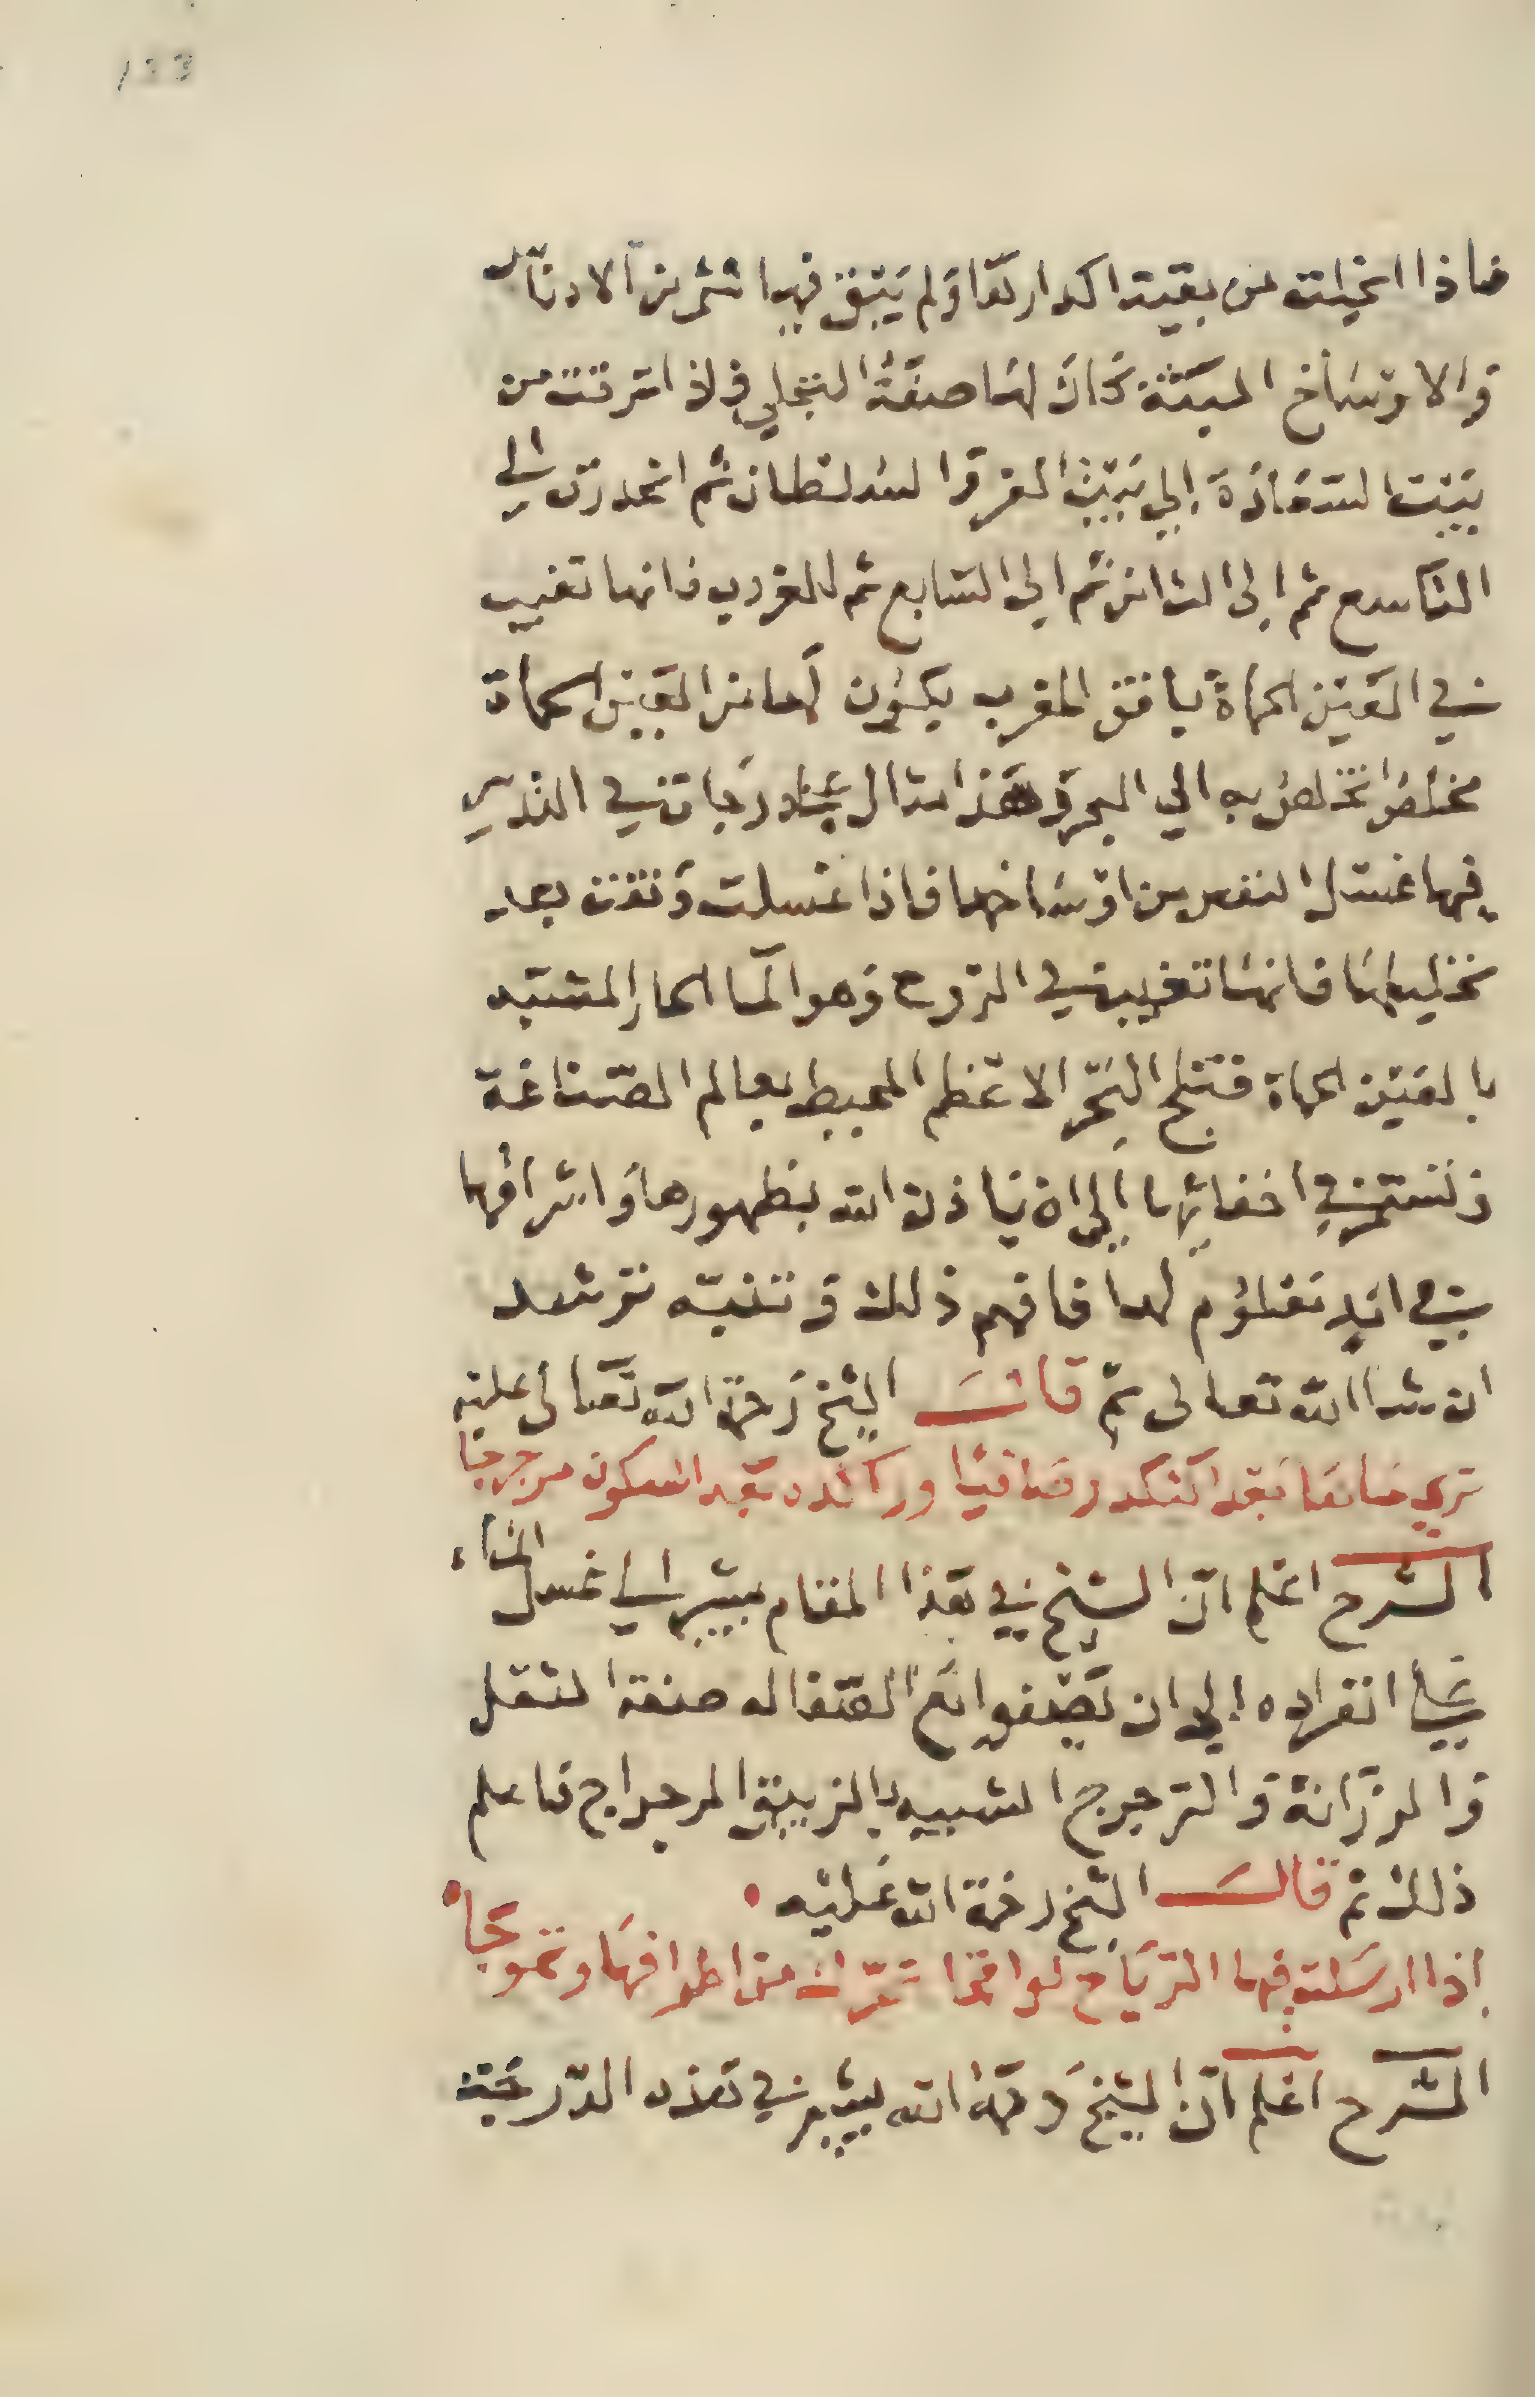 133
فاذا انجلت من بقية اكدارها ولم يبق فيها شىء من الادناس
والاوساخ الميتة كان لها صفة التجلي فاذا اشرقت من
بيت السعادة الى بيت العز والسلطان ثم انحدرت الى
التاسع ثم الى الثامن ثم الى السابع ثم للغروب فانها تغيب
في العين الحمأة بافق المغرب يكون لها من العين الحمأة
مخلص تخلص به الي البحر وهذا مثال درجات في التدبير
فيها غسل النفس من اوساخها فاذا غسلت ونقت بعد
تخليصها فانها تغيب في الروح وهو الما الحار المشبه
بالعين الحمأة فتلج البحر الاعظم المحيط بعالم الصناعة
فتستمر في اخفائها الى ان ياذن الله بظهورها واشراقها
في امد معلوم لها فافهم ذلك وتنبه ترشد
ان شا الله تعالى ثم قال الشيخ رحمة الله تعالى عليه
ترى مائها بعد التكدر صافيا وراكده بعد السكون مرجرجا
الشرح اعلم ان الشيخ في هذا المقام يشير الى غسل الماء
على انفراده الى ان يصفوا مع الصفا له صفة الثقل
والرزانة والترجرج الشبيه بالزيبق الرجراج فاعلم
ذلك ثم قال الشيخ رحمة الله عليه
اذا ارسلت فيها الرياح لواقحا تحرك من اطرافها وتموجا
الشرح اعلم ان الشيخ رحمة الله يشير في هذه الدرجة